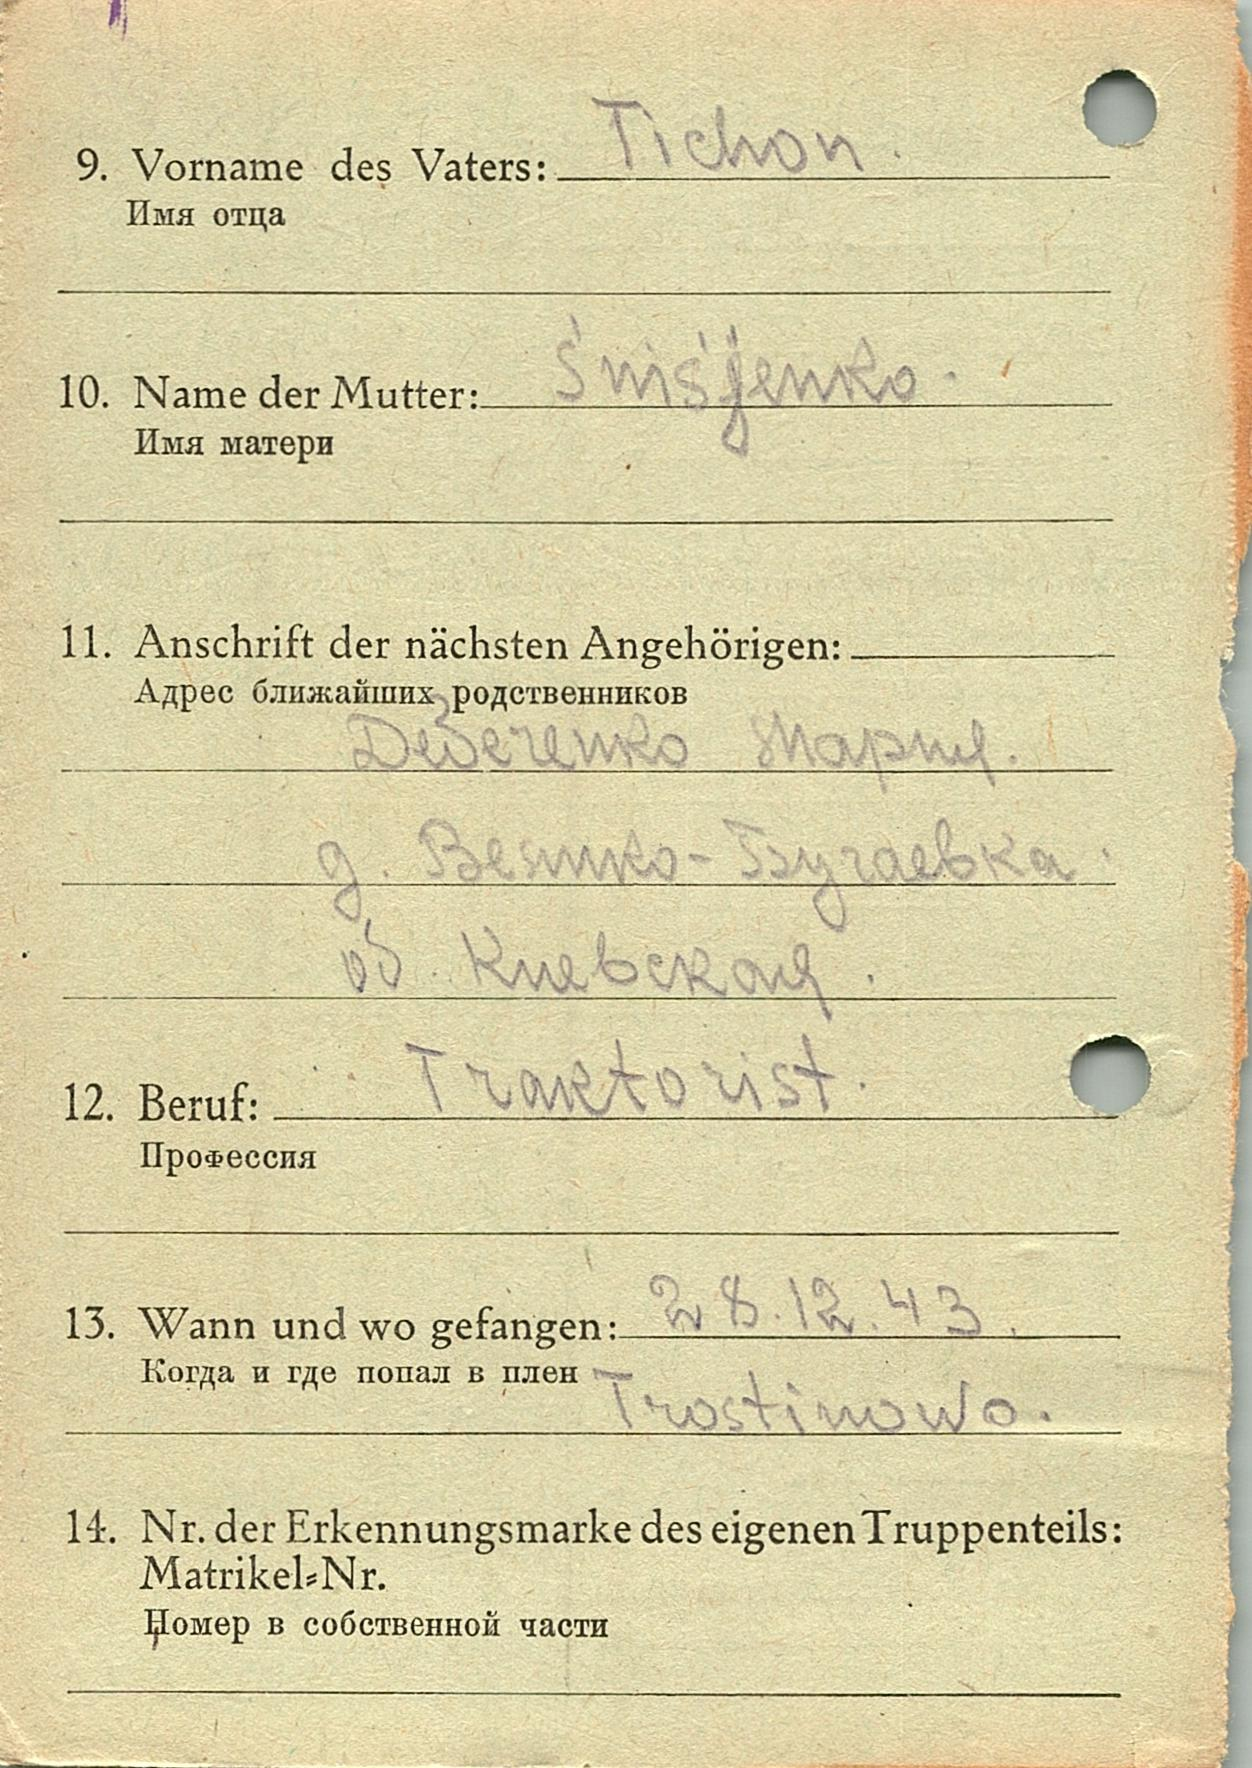 9. Vorname des Vaters: Tichon.
Имя отца
10. Name der Mutter: Śniśjenko.
Имя матери
11. Anschrift der nächsten Angehörigen:
Адрес ближайших родственников
Мария.
д. Бугаевка.
об. Киевская.
12. Beruf: Traktorist.
Профессия
13. Wann und wo gefangen: 28.12.43.
Когда и где попал в плен
Trostinowo.
14. Nr. der Erkennungsmarke des eigenen Truppenteils:
Matrikel-Nr.
Номер в собственной части